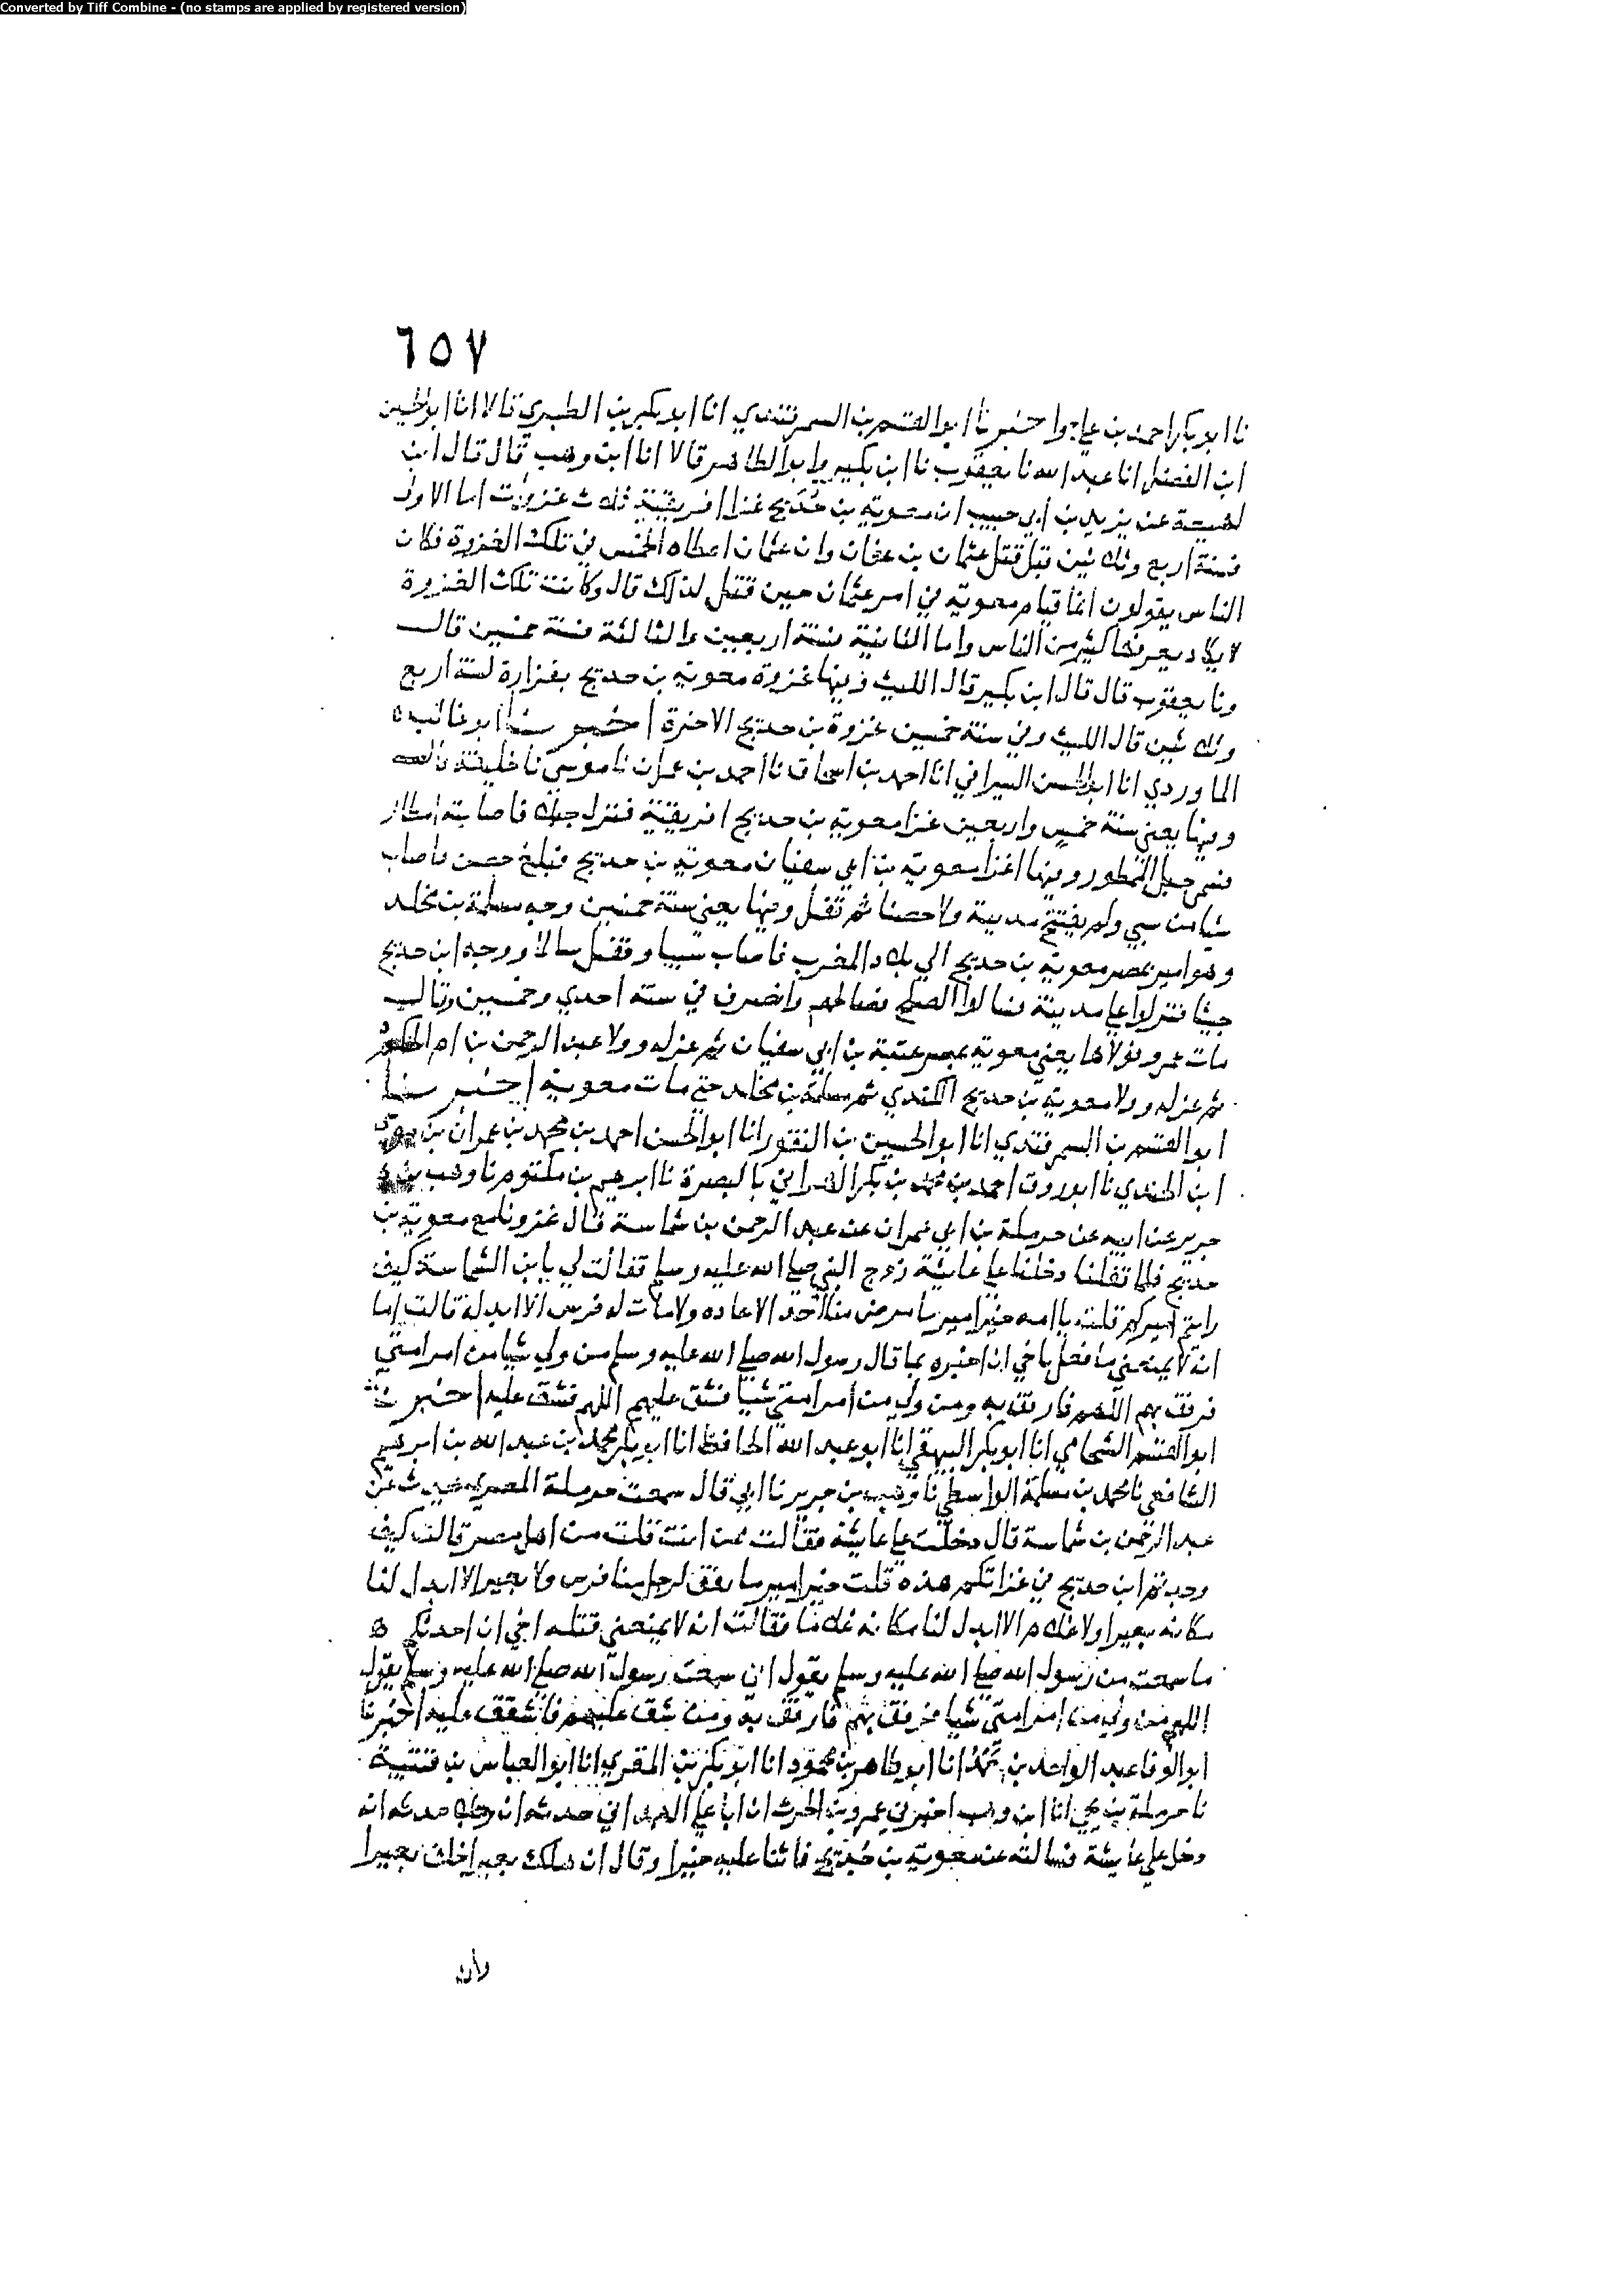 Converted by Tiff Combine - (no stamps are applied by registered version)
٦٥٧
نا ابو بكر احمد بن علي واخبرنا ابو القسم بن السمرقندي انا ابو بكر بن الطبري قالا انا ابو الحسين
ابن الفضل انا عبد الله نا يعقوب نا ابن بكير وابو الطاهر قالا انا ابن وهب قال قال ابن
لهيعة عن يزيد بن ابي حبيب ان معوية بن حُدَيج غزا افريقية ثلاث غزوات اما الاولى
فسنة اربع وثلاثين قبل قتل عثمان بن عفان وان عثمان اعطاه الخمس في تلك الغزوة فكان
الناس يقولون انما قيام معوية في امر عثمان حين قتل لذلك قال وكانت تلك الغزوة
لا يكاد يعرفها كثير من الناس واما الثانية سنة اربعين والثالثة سنة خمسين قال
ونا يعقوب قال قال ابن بكير قال الليث وفيها غزوة معوية بن حديج بفزارة لسنة اربع
وثلاثين قال الليث وفي سنة خمسين غزوة بن حديج الاخرة اخبرنا ابو غالب
الماوردي انا ابو الحسن السيرافي انا احمد بن اسحاق نا احمد بن عمران نا موسى نا خليفة قال
وفيها يعني سنة خمس واربعين غزا معوية بن حديج افريقية فنزل جبلا فاصابته امطار
فسمي جبل الممطور وفيها اغزا معوية بن ابي سفيان معوية بن حديج فبلغ حصن فاصاب
شيا من سبي ولم يفتتح مدينة ولا حصنا ثم قفل وفيها يعني سنة خمسين وجه مسلمة بن مخلد
وهو امير بمصر معوية بن حديج الي بلاد المغرب فاصاب سبيا وقفل سالما ووجه ابن حديج
جيشا فنزلوا علي مدينة فسالوا الصلح فصالحهم وانصرف في سنة احدي وخمسين وقال
مات عمرو فولاها يعني معوية بمصر عتبة بن ابي سفيان ثم عزله وولا عبد الرحمن بن ام الحكم
ثم عزله وولا معوية بن حديج الكندي ثم مسلمة بن مخلد حتي مات معوية اخبرنا
ابو القسم بن السمرقندي انا ابو الحسين بن النقور انا ابو الحسن احمد بن محمد بن عمران بن موسى
ابن الجندي نا ابو روق احمد بن محمد بن بكر الهزاني بالبصرة نا ابرهيم بن مكتوم نا وهب بن
جرير عن ابيه عن حرملة بن ابي عمران عن عبد الرحمن بن شماسة قال غزونا مع معوية بن
حديج فلما قفلنا دخلنا علي عائشة زوج النبي صلى الله عليه وسلم فقالت لي يا بن الشماسة كيف
رايتم اميركم قلت يا امه خير امير ما مرض منا احد الا عاده ولا مات له فرس الا ابدله قالت اما
انه لا يمنعني ما فعل باخي ان اخبره بما قال رسول الله صلى الله عليه وسلم من ولي شيا من امر امتي
فرفق بهم اللهم فارفق به ومن ولي من امر امتي شيا فشق عليهم اللهم فشق عليه اخبرنا
ابو القسم الشحامي انا ابو بكر البيهقي انا ابو عبد الله الحافظ انا ابو بكر محمد بن عبد الله بن ابرهيم
الشافعي نا محمد بن مسلمة الواسطي نا وهب بن جرير نا ابي قال سمعت حرملة المصري يحدث عن
عبد الرحمن بن شماسة قال دخلت علي عائشة فقالت ممن انت قلت من اهل مصر قالت كيف
وجدتم ابن حديج في غزاتكم هذه قلت خير امير ما يقف لرجل منا فرس ولا بعير الا ابدل لنا
مكانه بعيرا ولا غلام الا ابدل لنا مكانه غلاما فقالت انه لا يمنعني قتله اخي ان احدثكم
ما سمعت من رسول الله صلى الله عليه وسلم يقول اني سمعت رسول الله صلى الله عليه وسلم يقول
اللهم من ولي من امر امتي شيا فرفق بهم فارفق به ومن شق عليهم فاشقق عليه اخبرنا
ابو الوفا عبد الواحد بن حمد انا ابو طاهر بن محمود انا ابو بكر بن المقري انا ابو العباس بن قتيبة
نا حرملة بن يحيى انا ابن وهب اخبرني عمرو بن الحرث ان ابا علي الهمداني حدثه ان رجلا حدثه انه
دخل علي عايشة فسالته عن معوية بن حُدَيج فاثنا عليه خيرا وقال ان هلك بعير اخلف بعيرا